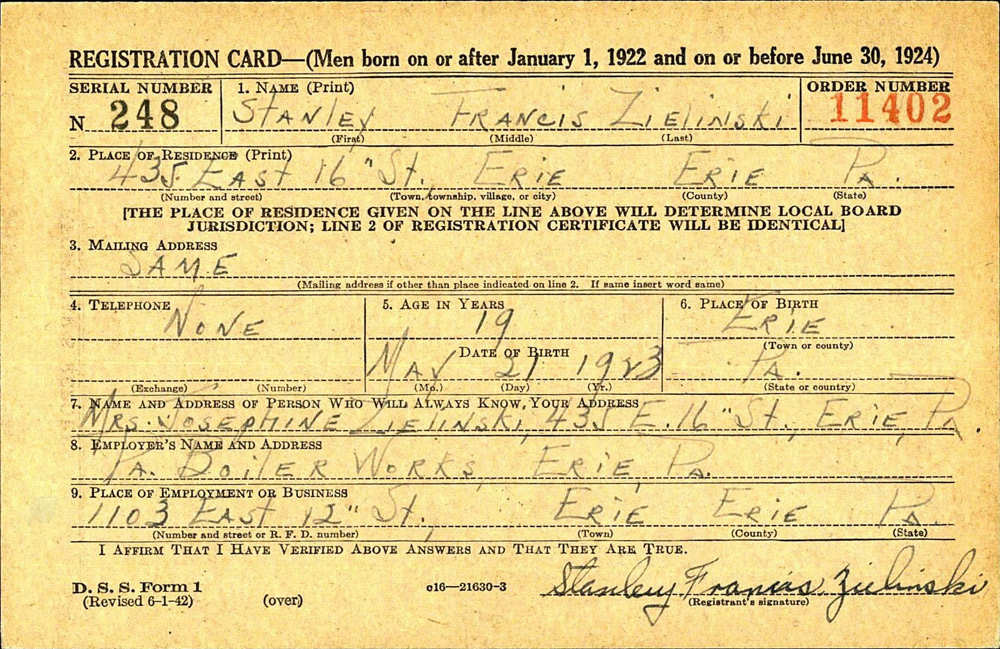 REGISTRATION CARD—(Men born on or after January 1, 1922 and on or before June 30, 1924)
SERIAL NUMBER 1. NAME (Print) ORDER NUMBER
N 248 STANLEY FRANCIS ZIELINSKI 11402
(First) (Middle) (Last)
2. PLACE OF RESIDENCE (Print)
435 EAST 16" St. ERIE ERIE PA.
(Number and street) (Town, township, village, or city) (County) (State)
[THE PLACE OF RESIDENCE GIVEN ON THE LINE ABOVE WILL DETERMINE LOCAL BOARD
JURISDICTION; LINE 2 OF REGISTRATION CERTIFICATE WILL BE IDENTICAL]
3. MAILING ADDRESS
SAME
(Mailing address if other than place indicated on line 2. If same insert word same)
4. TELEPHONE 5. AGE IN YEARS 6. PLACE OF BIRTH
NONE 19 ERIE
(Town or county)
DATE OF BIRTH
MAY 21 1923 PA.
(Exchange) (Number) (Mo.) (Day) (Yr.) (State or country)
7. NAME AND ADDRESS OF PERSON WHO WILL ALWAYS KNOW YOUR ADDRESS
MRS. JOSEPHINE ZIELINSKI, 435 E. 16" St., ERIE, PA.
8. EMPLOYER'S NAME AND ADDRESS
PA. BOILER WORKS, ERIE, PA.
9. PLACE OF EMPLOYMENT OR BUSINESS
1103 EAST 12" St., ERIE ERIE PA.
(Number and street or R. F. D. number) (Town) (County) (State)
I AFFIRM THAT I HAVE VERIFIED ABOVE ANSWERS AND THAT THEY ARE TRUE.
D. S. S. Form 1
(Revised 6-1-42) (over) c16—21630-3 Stanley Francis Zielinski
(Registrant's signature)